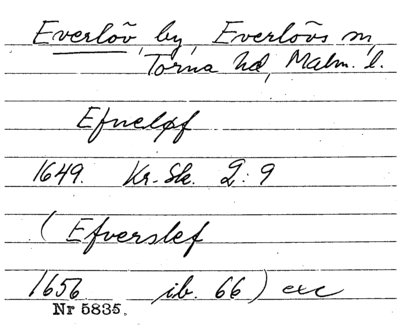 Everlöv by, Everlövs sn,
Torna hd, Malm. l.
Efveløf
1649. Kr. Sk. 2:9
( Efverslef
1656 ib. 66 ) exc
Nr 5835.